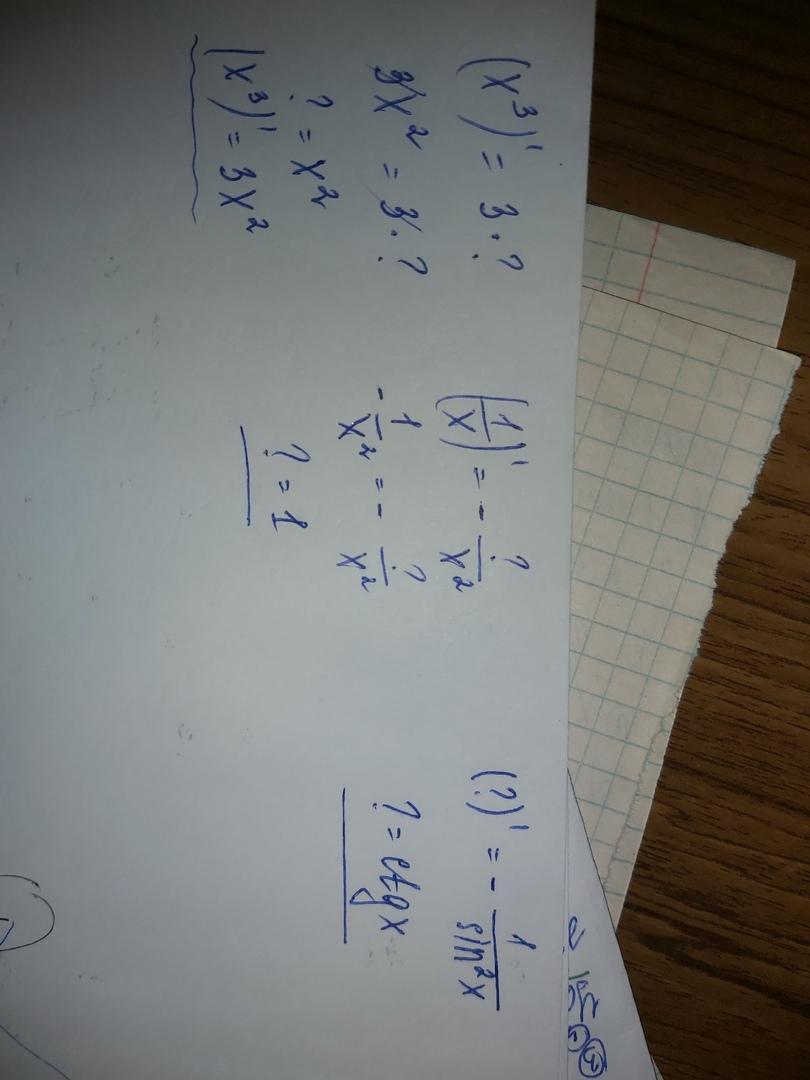 (x³)' = 3·?
3x² = 3·?
? = x²
(x³)' = 3x²
(1/x)' = - ?/x²
- 1/x² = - ?/x²
? = 1
(?)' = - 1/sin²x
? = ctgx